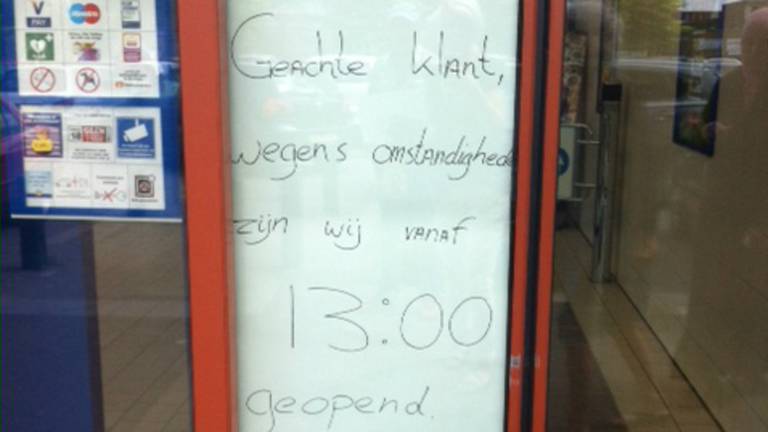 V PAY
Geachte klant,
wegens omstandighede
zijn wij vanaf
13:00
geopend.